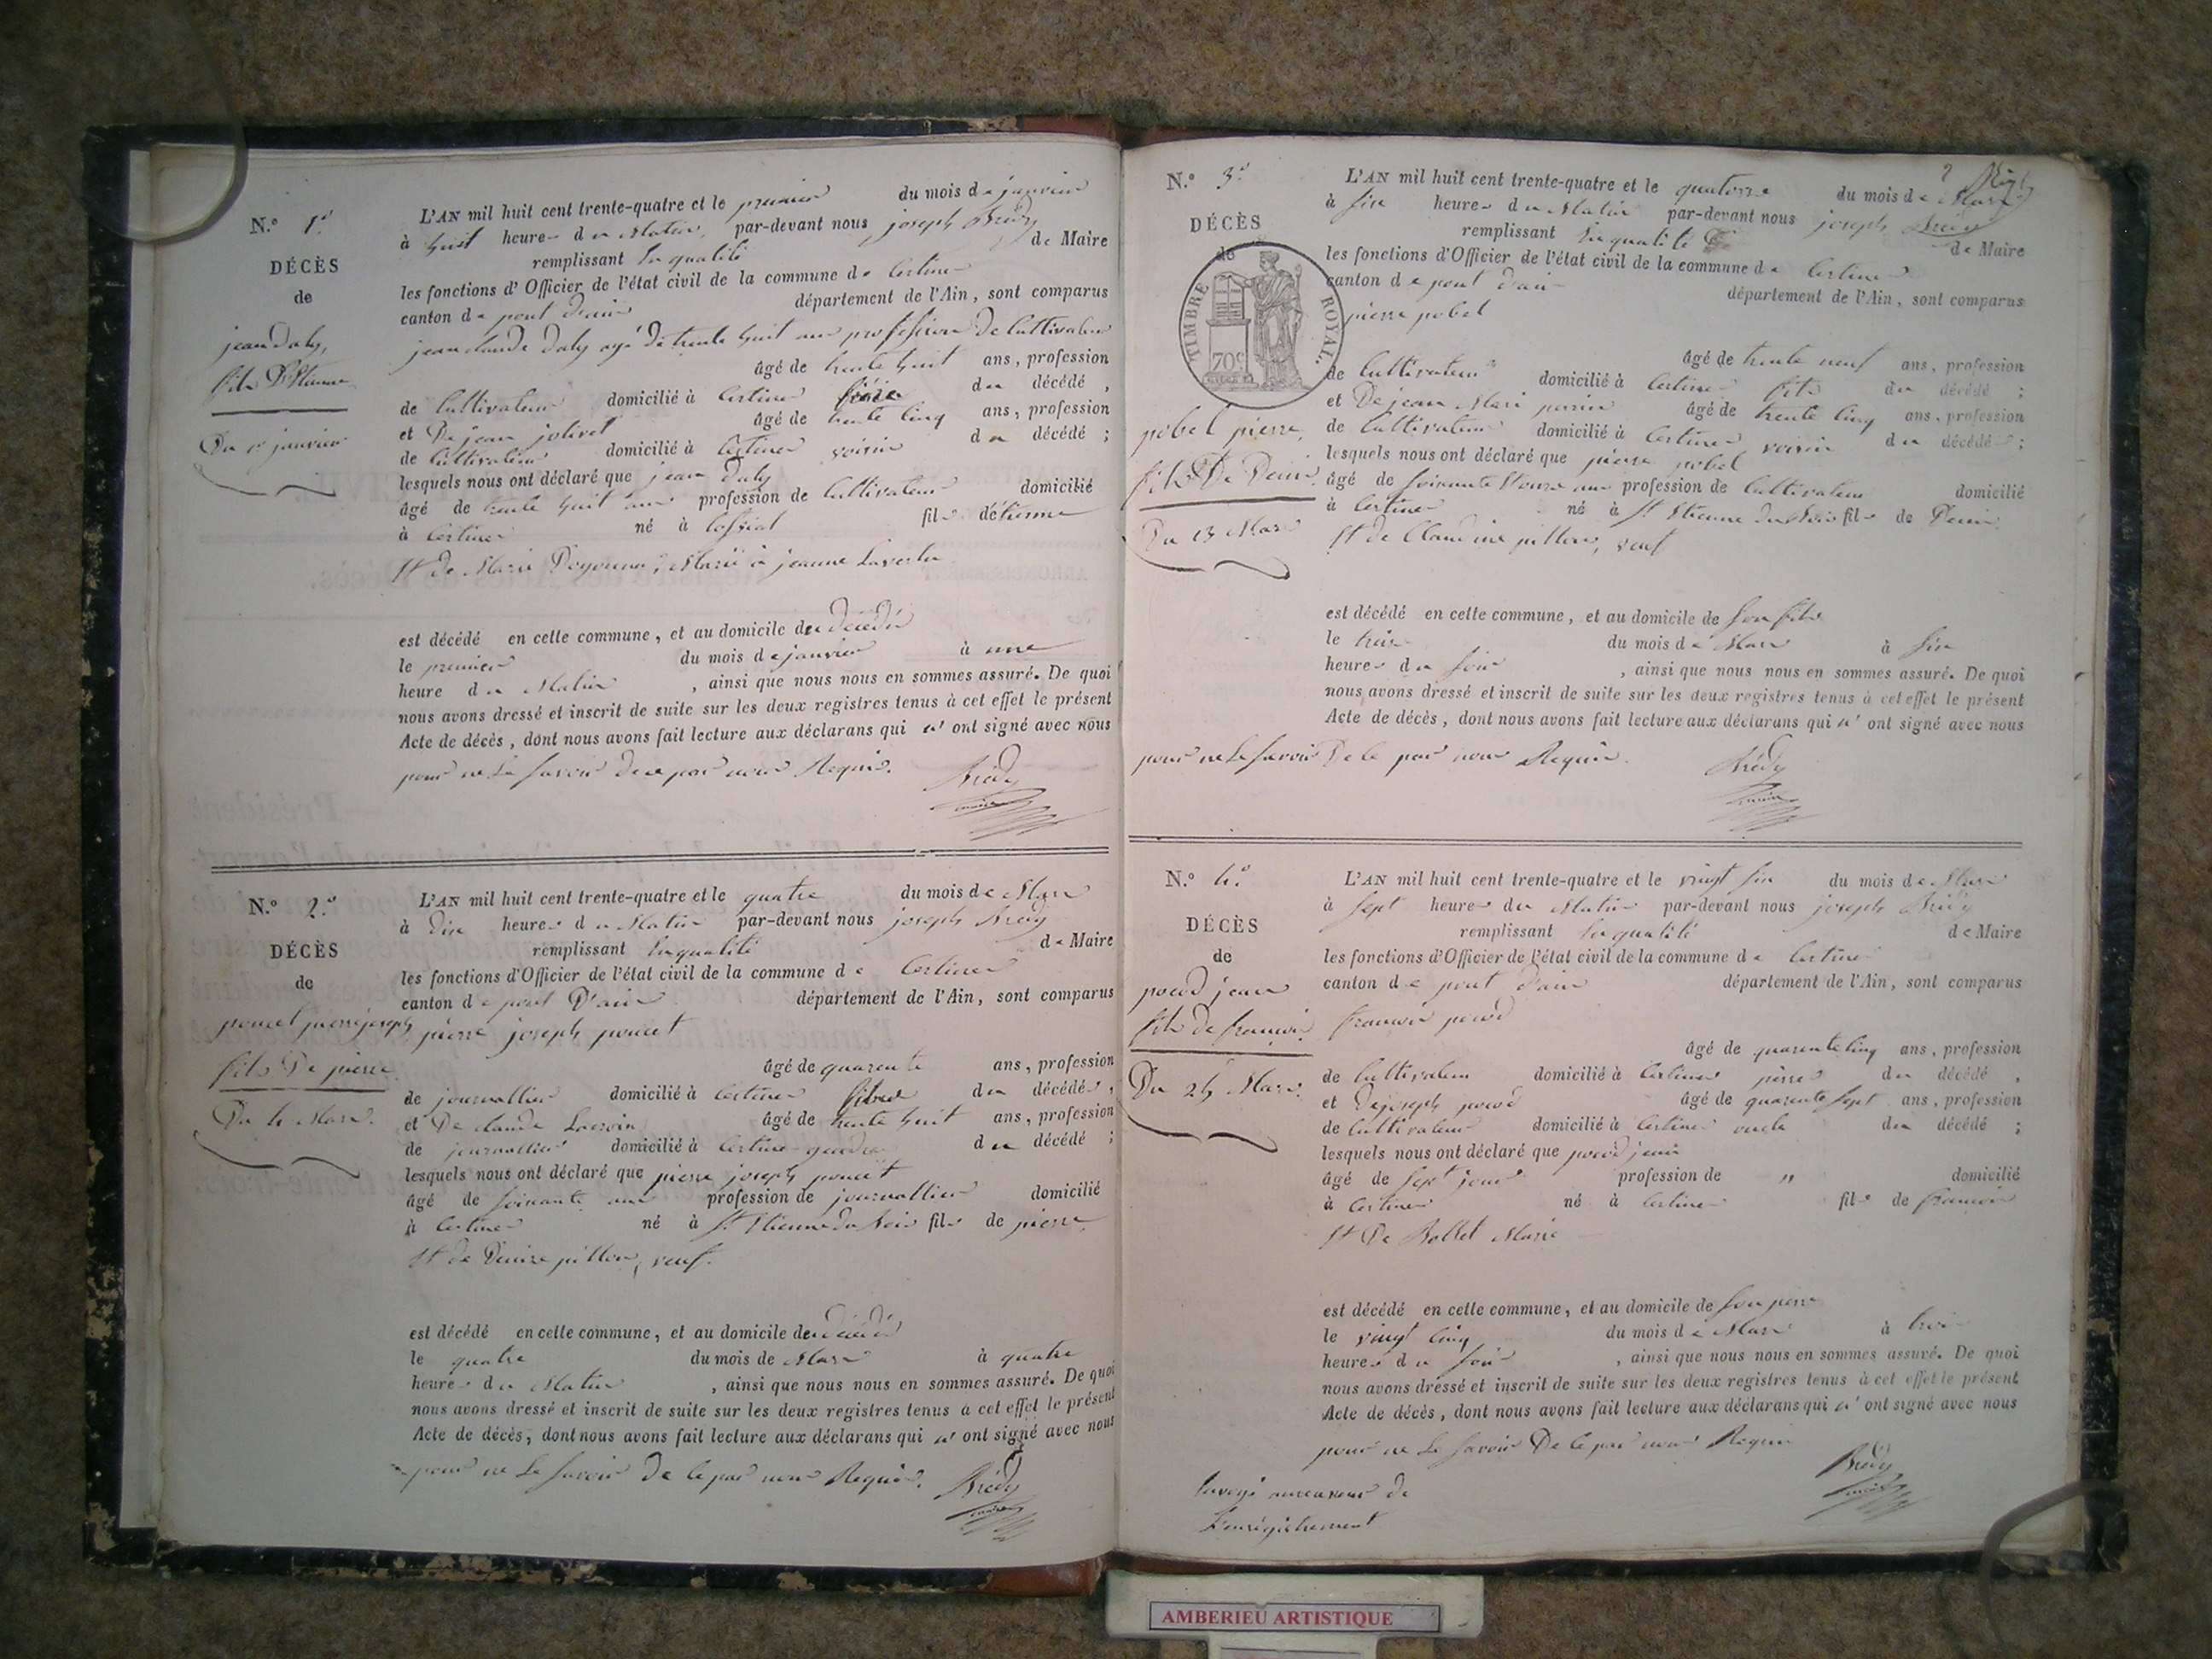 N.º 1.º
DÉCÈS
de
jean Daly,
fils D'Etienne
Du 1er janvier
L'AN mil huit cent trente-quatre et le premier du mois de janvier
à huit heures du Matin, par-devant nous joseph Brédy
remplissant En qualité de Maire
les fonctions d'Officier de l'état civil de la commune de Certines
canton de pont d'ain département de l'Ain, sont comparus
jean claude Daly agé de trente huit ans profession De Cultivateur
âgé de trente huit ans, profession
de Cultivateur domicilié à Certines frère du décédé,
et De jean jolivet âgé de trente cinq ans, profession
de Cultivateur domicilié à Certines voisin du décédé;
lesquels nous ont déclaré que jean Daly
âgé de trente huit ans profession de Cultivateur domicilié
à Certines né à fils d'étienne
Et de Marie Marié à jeanne
est décédé en cette commune, et au domicile du Décédé
le premier du mois de janvier à une
heure du Matin, ainsi que nous nous en sommes assuré. De quoi
nous avons dressé et inscrit de suite sur les deux registres tenus à cet effet le présent
Acte de décès, dont nous avons fait lecture aux déclarans qui n'ont signé avec nous
pour ne Le Savoir De ce par nous Requis. Brédy
maire
N.º 2.º
DÉCÈS
de
poncet pierre joseph
fils De pierre
Du 4 Mars.
L'AN mil huit cent trente-quatre et le quatre du mois de Mars
à Dix heures du Matin par-devant nous joseph Brédy
remplissant En qualité de Maire
les fonctions d'Officier de l'état civil de la commune de Certines
canton de pont D'ain département de l'Ain, sont comparus
pierre joseph poncet
âgé de quarente ans, profession
de journallier domicilié à Certines fils du décédé,
et De claude Lacroix âgé de trente huit ans, profession
de journallier domicilié à Certines gendre du décédé;
lesquels nous ont déclaré que pierre joseph poncet
âgé de soixante ans profession de journallier domicilié
à Certines né à St Etienne du bois fils de pierre
Et de Denise pillon, veuf.
est décédé en cette commune, et au domicile du Décédé
le quatre du mois de Mars à quatre
heures du Matin, ainsi que nous nous en sommes assuré. De quoi
nous avons dressé et inscrit de suite sur les deux registres tenus à cet effet le présent
Acte de décès, dont nous avons fait lecture aux déclarans qui n'ont signé avec nous
pour ne Le Savoir De ce par nous Requis. Brédy
maire
N.º 3.º
DÉCÈS
de
TIMBRE ROYAL.
70c
pobel pierre,
fils De Denis
Du 13 Mars
L'AN mil huit cent trente-quatre et le quatorze du mois de Mars
à six heures du Matin par-devant nous joseph Brédy
remplissant En qualité de Maire
les fonctions d'Officier de l'état civil de la commune de Certines
canton de pont d'ain département de l'Ain, sont comparus
pierre pobel
âgé de trente neuf ans, profession
de Cultivateur domicilié à Certines fils du décédé;
et De jean Marie perrin âgé de trente cinq ans, profession
de Cultivateur domicilié à Certines voisin du décédé;
lesquels nous ont déclaré que pierre pobel
âgé de soixante Et onze ans profession de Cultivateur domicilié
à Certines né à St Etienne du Bois fils de Denis
Et de Claudine pillon, veuf
est décédé en cette commune, et au domicile de son fils
le treize du mois de Mars à six
heures du soir, ainsi que nous nous en sommes assuré. De quoi
nous avons dressé et inscrit de suite sur les deux registres tenus à cet effet le présent
Acte de décès, dont nous avons fait lecture aux déclarans qui n'ont signé avec nous
pour ne Le Savoir De ce par nous Requis. Brédy
maire
N.º 4.º
DÉCÈS
de
pocod jean
fils de francois.
Du 25 Mars.
L'AN mil huit cent trente-quatre et le vingt six du mois de Mars
à sept heures du Matin par-devant nous joseph Brédy
remplissant En qualité de Maire
les fonctions d'Officier de l'état civil de la commune de Certines
canton de pont d'ain département de l'Ain, sont comparus
francois pocod
âgé de quarente cinq ans, profession
de Cultivateur domicilié à Certines père du décédé,
et De joseph pocod âgé de quarente sept ans, profession
de Cultivateur domicilié à Certines oncle du décédé;
lesquels nous ont déclaré que pocod jean
âgé de sept jours profession de " domicilié
à Certines né à Certines fils de francois
Et De Ballet Marie
est décédé en cette commune, et au domicile de son pere
le vingt cinq du mois de Mars à trois
heures du soir, ainsi que nous nous en sommes assuré. De quoi
nous avons dressé et inscrit de suite sur les deux registres tenus à cet effet le présent
Acte de décès, dont nous avons fait lecture aux déclarans qui n'ont signé avec nous
pour ne Le Savoir De ce par nous Requis Brédy
maire
Envoyé au receveur de
L'enregistrement
AMBERIEU ARTISTIQUE